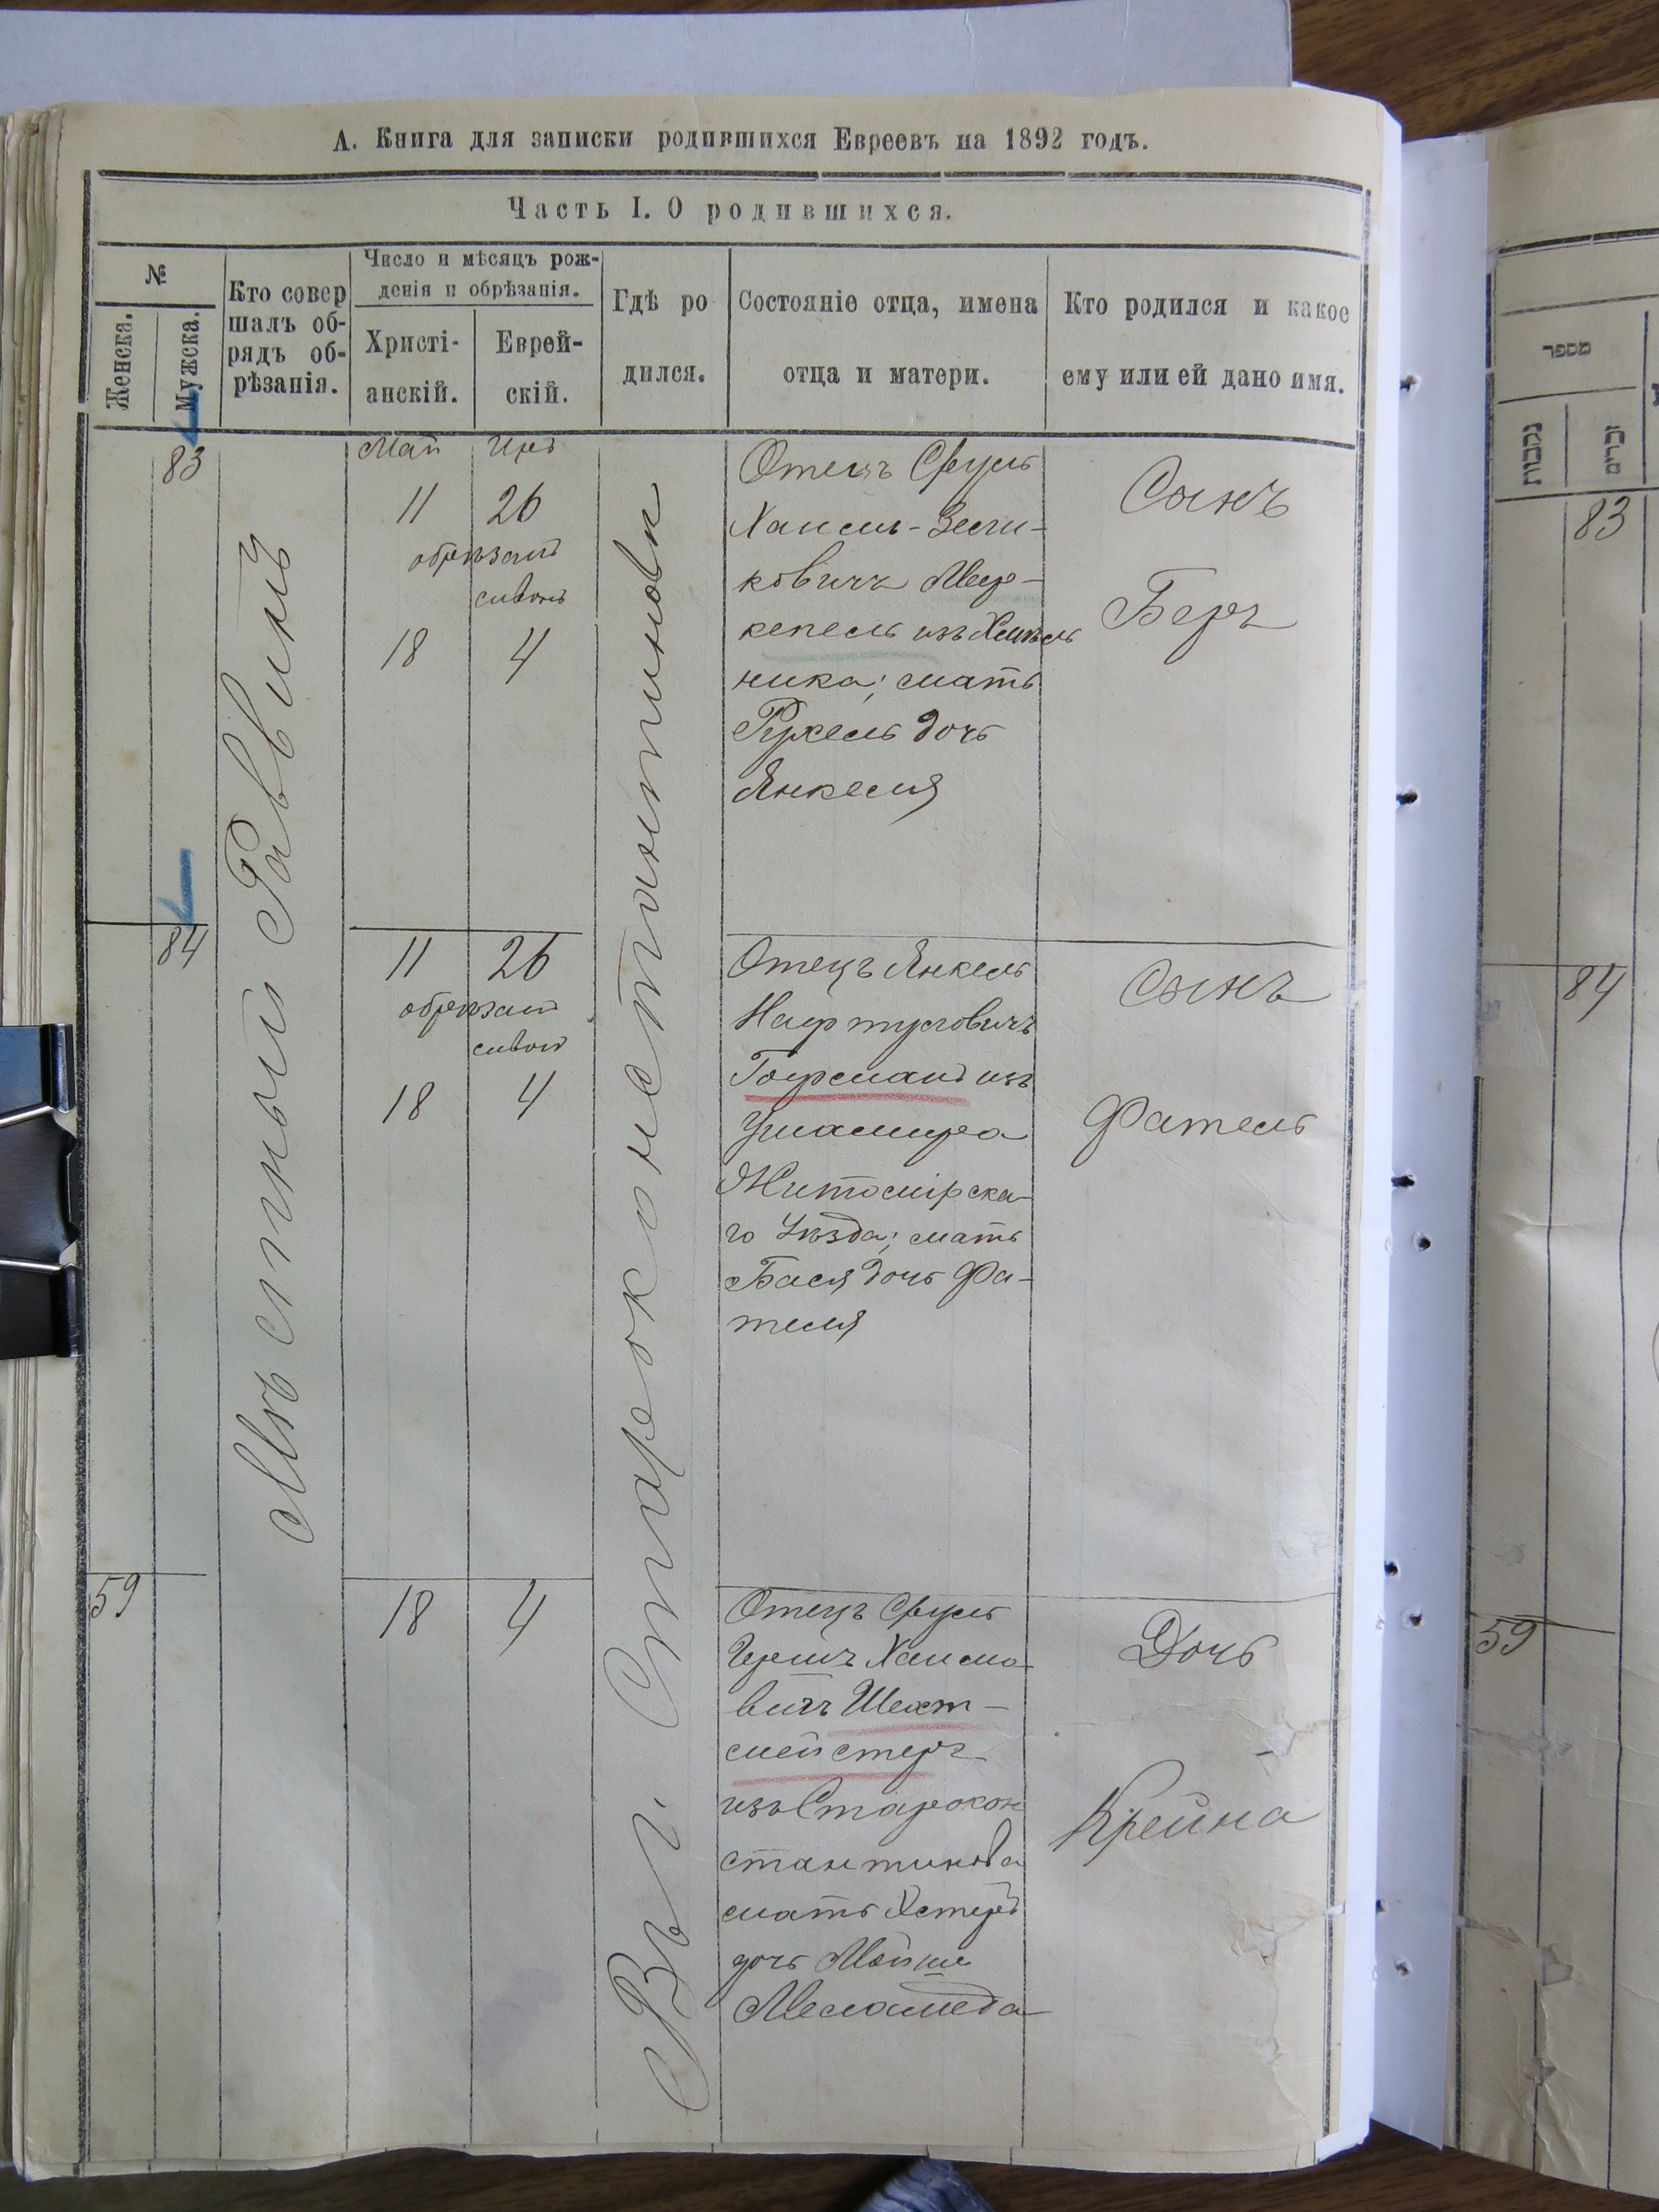 А. Книга для записки родившихся Евреевъ на 1892 годъ.
Часть I. О родившихся.
№
Женска.
Мужска.
Кто совер
шалъ об-
рядъ об-
рѣзанія.
Число и мѣсяцъ рож-
денія и обрѣзанія.
Христі-
анскій.
Еврей-
скій.
Гдѣ ро
дился.
Состояніе отца, имена
отца и матери.
Кто родился и какое
ему или ей дано имя.
Мѣстный Раввинъ
Въ г. Староконстантиновѣ
83
Май Иръ
11 26
обрѣзанъ
сивонъ
18 4
Отецъ Сруль
Хаимъ-Зели-
ковичъ Мер-
кепель изъ Хмѣль
ника; мать
Рухель дочь
Янкеля
Сынъ
Беръ
84
11 26
обрѣзанъ
сивонъ
18 4
Отецъ Янкель
Нафтуловичъ
Гофманъ изъ
Ушамира
Житомірска-
го Уѣзда; мать
Бася дочь Фа-
теля
Сынъ
Фатель
59
18 4
Отецъ Сруль
Гершъ Хаимо
вичъ Шехт-
мейстеръ
изъ Старокон
стантинова
мать Эстеръ
дочь Мойше
Меламеда
Дочь
Крейна
מספר
נקבות
זכרים
83
84
59